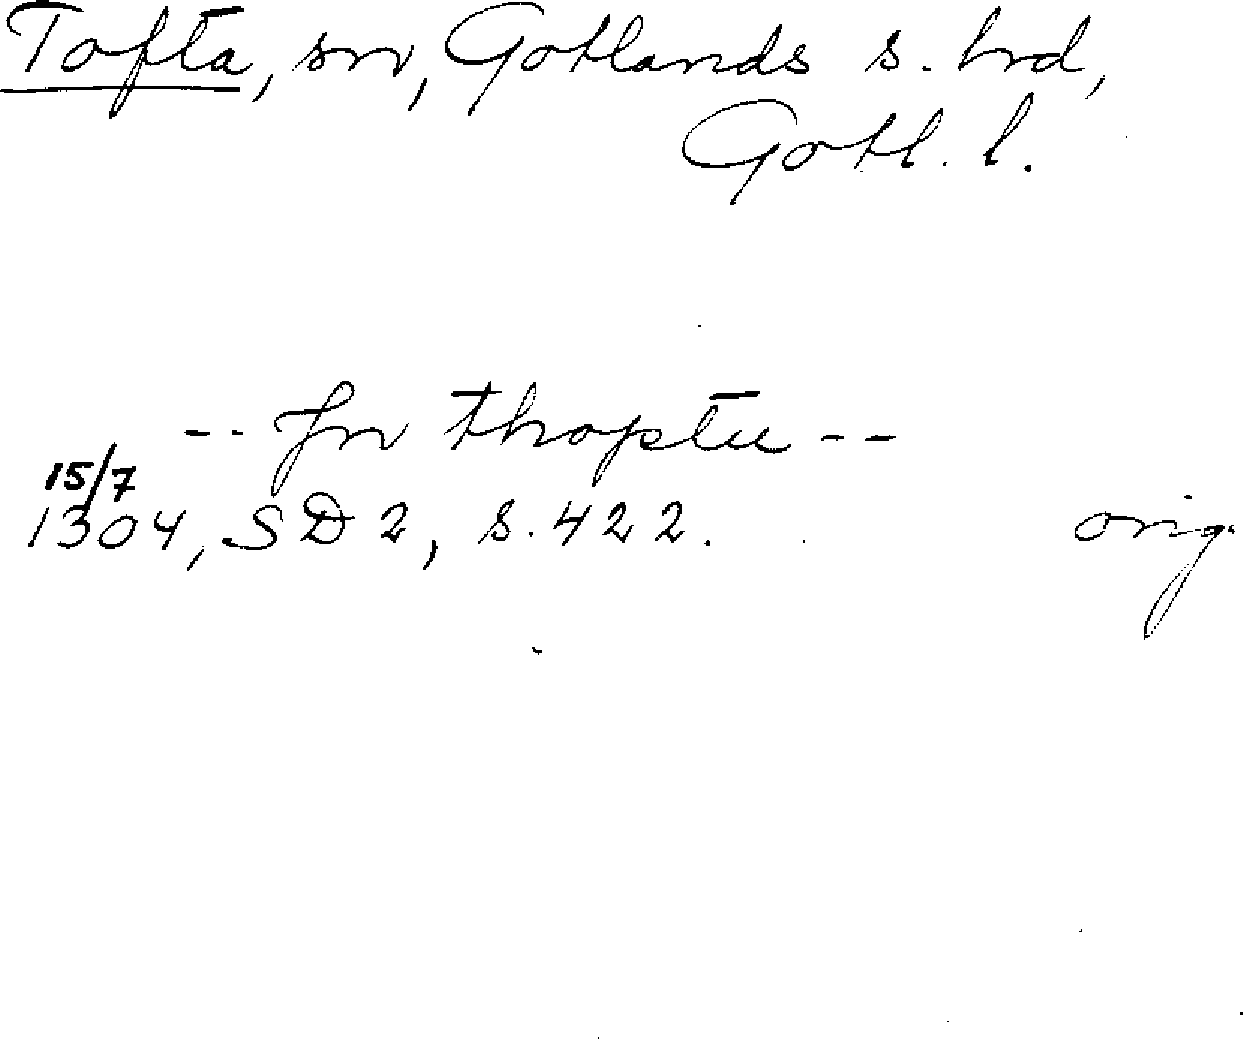 Tofta, sn, Gotlands s. hrd,
Gotl. l.
-- Jn thoptu --
15/7
1304, SD 2, s. 422. orig.